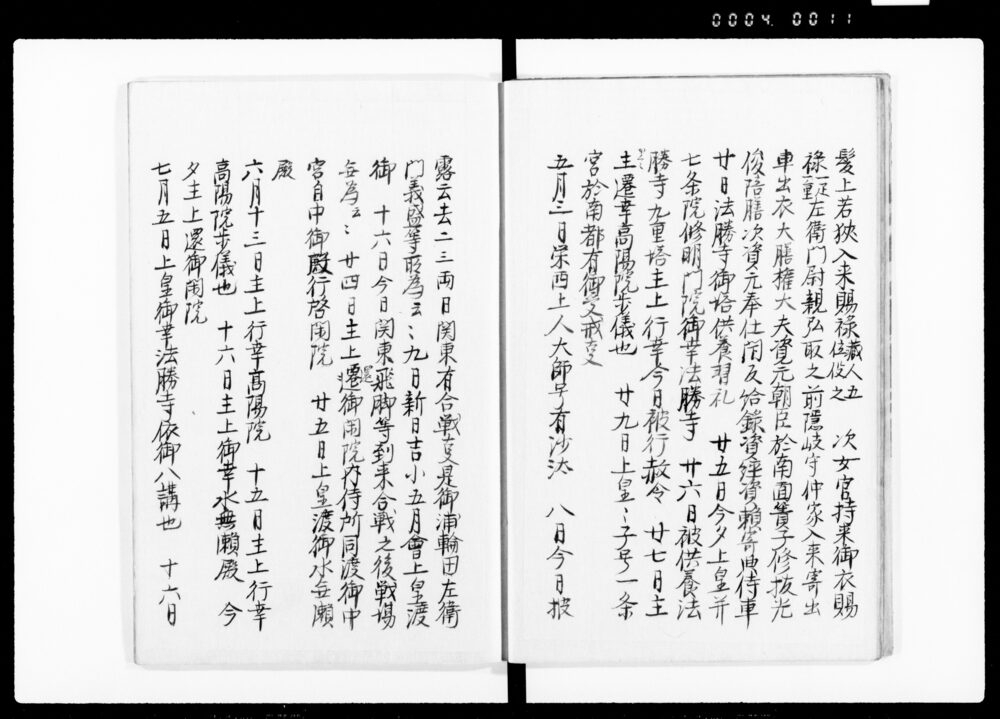 0004 0011
髪上若狭入来賜禄蔵人五位役之 次女官持来御衣賜
禄一疋左衛門尉親弘取之前隠岐守仲家入来寄出
車出衣大膳権大夫資元朝臣於南面簀子修抜光
俊陪膳次資元奉仕閇反给錄資経資頼寄典侍車
廿日法勝寺御塔供養習礼 廿五日今夕上皇并
七条院修明門院御幸法勝寺 廿六日被供養法
勝寺九重塔主上行幸今日被行赦令 廿七日主
主遷幸高陽院歩儀也 廿九日上皇〻子号一条
宮於南都有御受戒事
五月三日栄西上人大師号有沙汰 八日今日披
露云去二三両日関東有合戦事是御浦輪田左衛
門義盛等所為云〻九日新日吉小五月會上皇渡
御 十六日今日関東飛脚等到来合戦之後戦場
無為云〻 廿四日主上遷還御閑院内侍所同渡御中
宮自中御殿行啓閑院 廿五日上皇渡御水無瀬
殿
六月十三日主上行幸高陽院 十五日主上行幸
高陽院歩儀也 十六日主上御幸水無瀬殿 今
夕主上還御閑院
七月五日上皇御幸法勝寺依御八講也 十六日